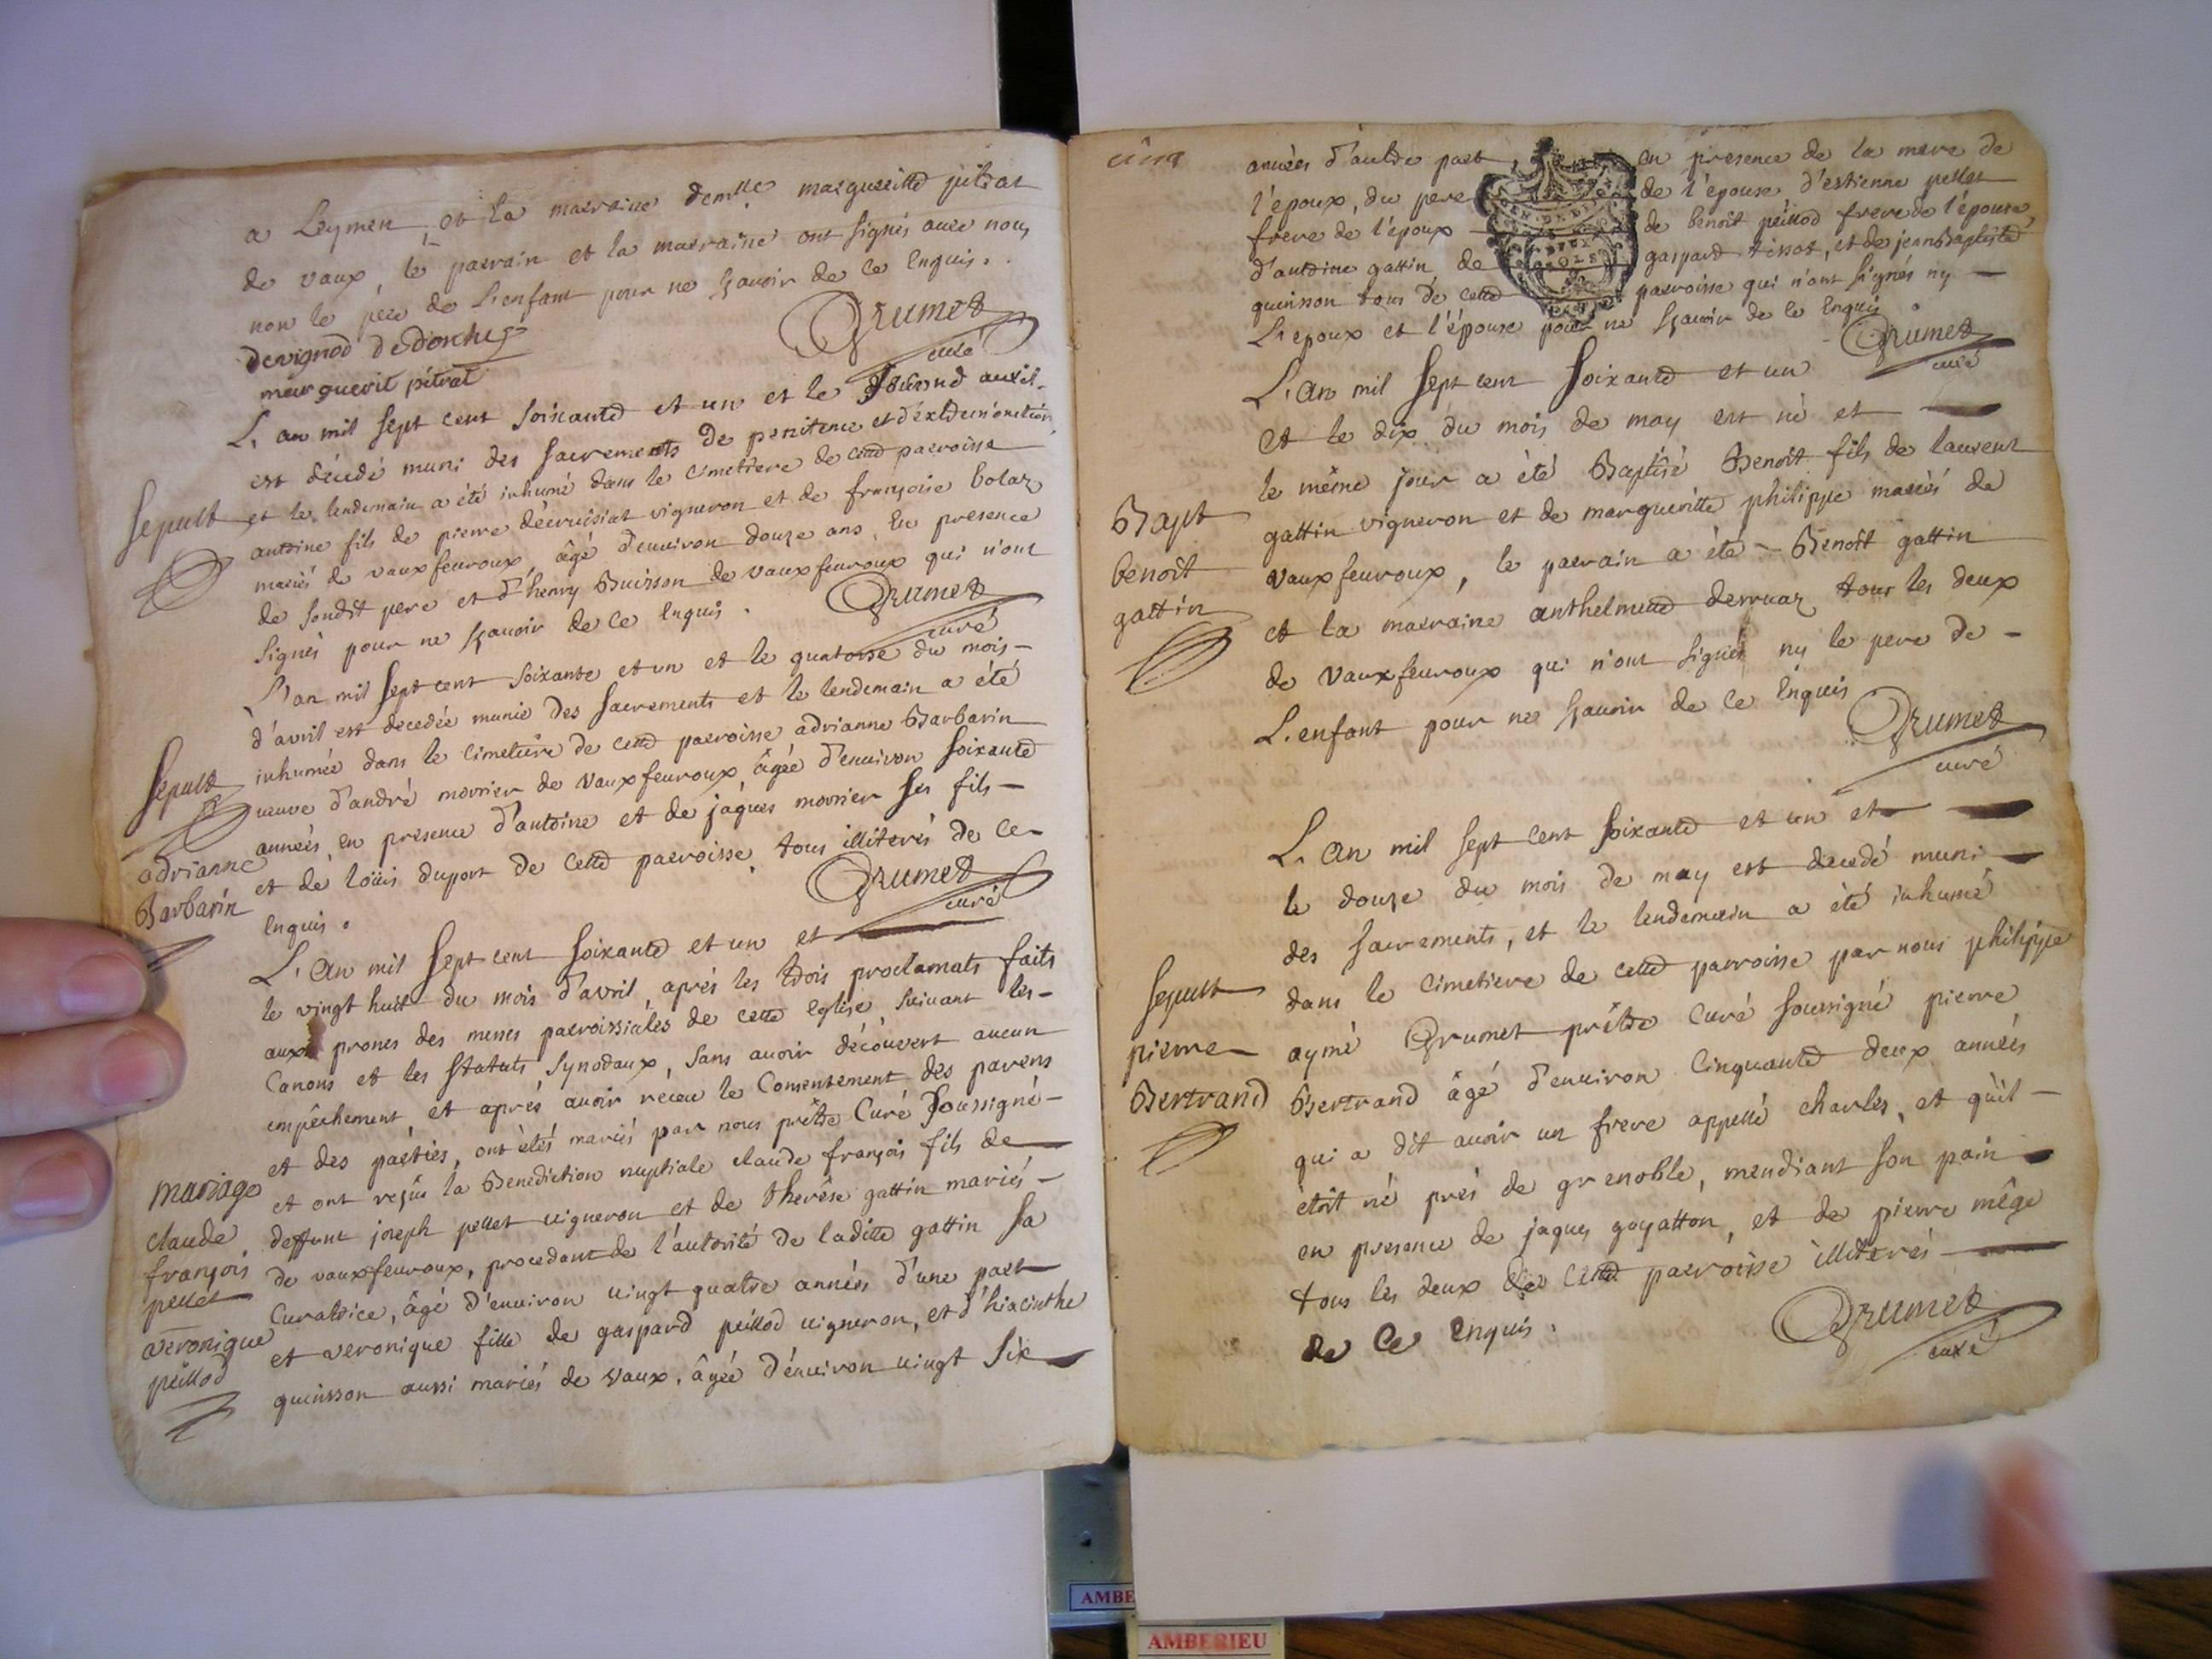 a Leymen, et la marraine dem.lle margueritte pitrat
de vaux, le parrain et la marraine ont signés avec nous
non le père de L'enfant pour ne sçavoir de ce Enquis.
Grumet
curé
marguerit pitrat
L'an mil sept cent soixante et un et le second avril
est décedé muni des sacrements de penitence et d'extrem'onction
Sepult
et le lendemain a été inhumé dans le cimetiere de cette parroisse
antoine fils de pierre décruisiat vigneron et de françoise bolaz
mariés de vauxfevroux, âgé d'environ douze ans, En presence
de sondit pere et d'henry Buisson de vauxfevroux qui n'ont
signés pour ne sçavoir de ce Enquis.
Grumet
curé
L'an mil sept cent soixante et un et le quatorse du mois
d'avril est decedée munie des sacrements et le lendemain a été
Sepult
adrianne
Barbarin
inhumée dans le cimetiere de cette parroisse adrianne Barbarin
veuve d'andré movrier de vauxfevroux, âgée d'environ soixante
années, En presence d'antoine et de jâques movrier ses fils
et de loüis duport de cette parroisse, tous illiterés de ce
Enquis.
Grumet
curé
L'an mil sept cent soixante et un et
le vingt huit du mois d'avril, aprés les trois proclamats faits
aux prones des messes parroissiales de cette Eglise, suivant les
Canons et les statuts synodaux, sans avoir découvert aucun
empêchement, et aprés avoir réceu le Consentement des parens
et des parties, ont étés mariés par nous prêtre Curé soussigné
et ont reçûs la Benediction nuptiale claude françois fils de
mariage
claude
françois
pellet
averonique
peillod
deffunt joseph pellet vigneron et de thérèse gattin mariés
de vauxfevroux, procedant de l'autorité de laditte gattin sa
Curatrice, âgé d'environ vingt quatre années d'une part
et averonique fille de gaspard peillod vigneron, et d'hiacinthe
quinsson aussi mariés de vaux, âgée d'environ vingt six
années d'autre part, en presence de la mere de
l'époux, du pere de l'épouse d'estienne pellet
frere de l'époux de benoit peillod frere de l'épouse,
d'antoine gattin, de gaspard tissot, et de jean Baptiste
quinson tous de cette parroisse qui n'ont signés ny
L'epoux et l'épouse pour ne sçavoir de ce Enquis.
Grumet
curé
L'an mil sept cent soixante et un
et le dix du mois de may est né et
le même jour a été Baptisé Benoit fils de laurent
Bapt
benoit
gattin
gattin vigneron et de margueritte philippe mariés de
vauxfevroux, le parrain a été Benoit gattin
et la marraine anthelmette derruaz tous les deux
de vauxfevroux qui n'ont signés ny le pere de
L'enfant pour ne sçavoir de ce Enquis
Grumet
curé
L'an mil sept cent soixante et un et
le douze du mois de may est decedé muni
des sacrements, et le lendemain a été inhumé
Sepult
pierre
Bertrand
dans le cimetiere de cette parroisse par nous philippe
aymé Grumet prêtre Curé soussigné pierre
Bertrand âgé d'environ Cinquante deux années
qui a dit avoir un frere appellé charles, et qu'il
étoit né prés de grenoble, mendiant son pain
en presence de jaques goyatton, et de pierre mêge
tous les deux de cette parroisse illiterés
de Ce Enquis.
Grumet
curé
AMBE
AMBERIEU